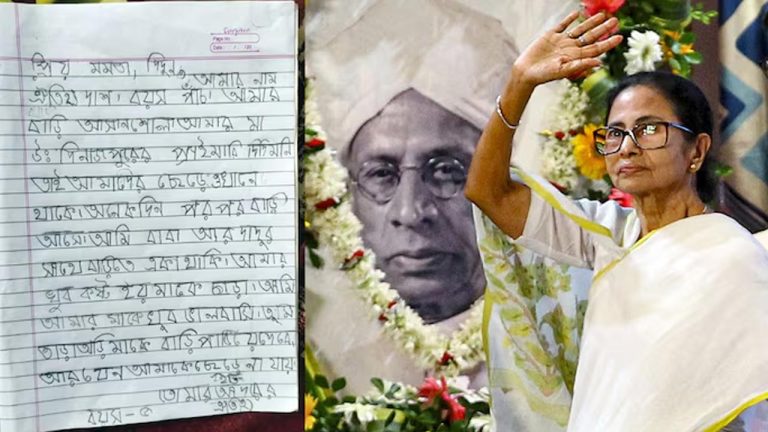 Page No.
Date: / /20
প্রিয় মমতা দিদুন,
আমার নাম
ঐতিহ্য দাশ। বয়স পাঁচ। আমার
বাড়ি আসানশোল। আমার মা
উঃ দিনাজপুরের প্রাইমারি দিদিমনি
তাই আমাদের ছেড়ে ওখানে
থাকে। অনেক দিন পর পর বাড়ী
আসে। আমি বাবা আর দাদুর
সাথে বাড়িতে একা থাকি। আমার
খুব কষ্ট হয় মাকে ছাড়া। আমি
আমার মাকে খুব ভালবাসি। তুমি
তাড়াতাড়ি মাকে বাড়ি পাঠিয়ে দেবে,
আর যেন আমাকে ছেড়ে না যায়
তোমার আদরের
ঐতিহ্য
বয়স - ৫